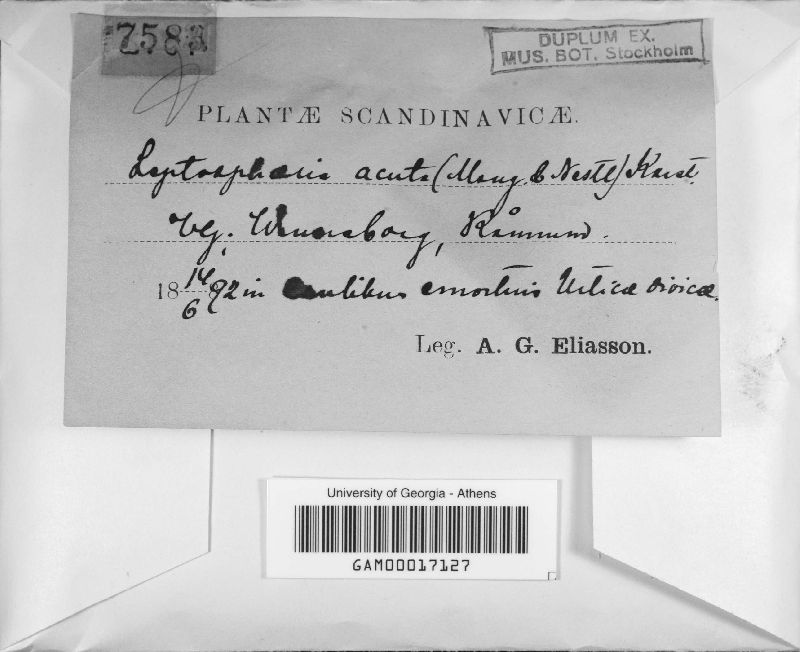 7583
DUPLUM EX.
MUS. BOT. Stockholm
PLANTÆ SCANDINAVICÆ.
Leptosphæria acuta (Moug. & Nestl) Karst.
Vg. Wenersborg, Rånnum.
18 14/6 92 in caulibus emortuis Urticæ dioicæ.
Leg. A. G. Eliasson.
University of Georgia - Athens
GAM00017127